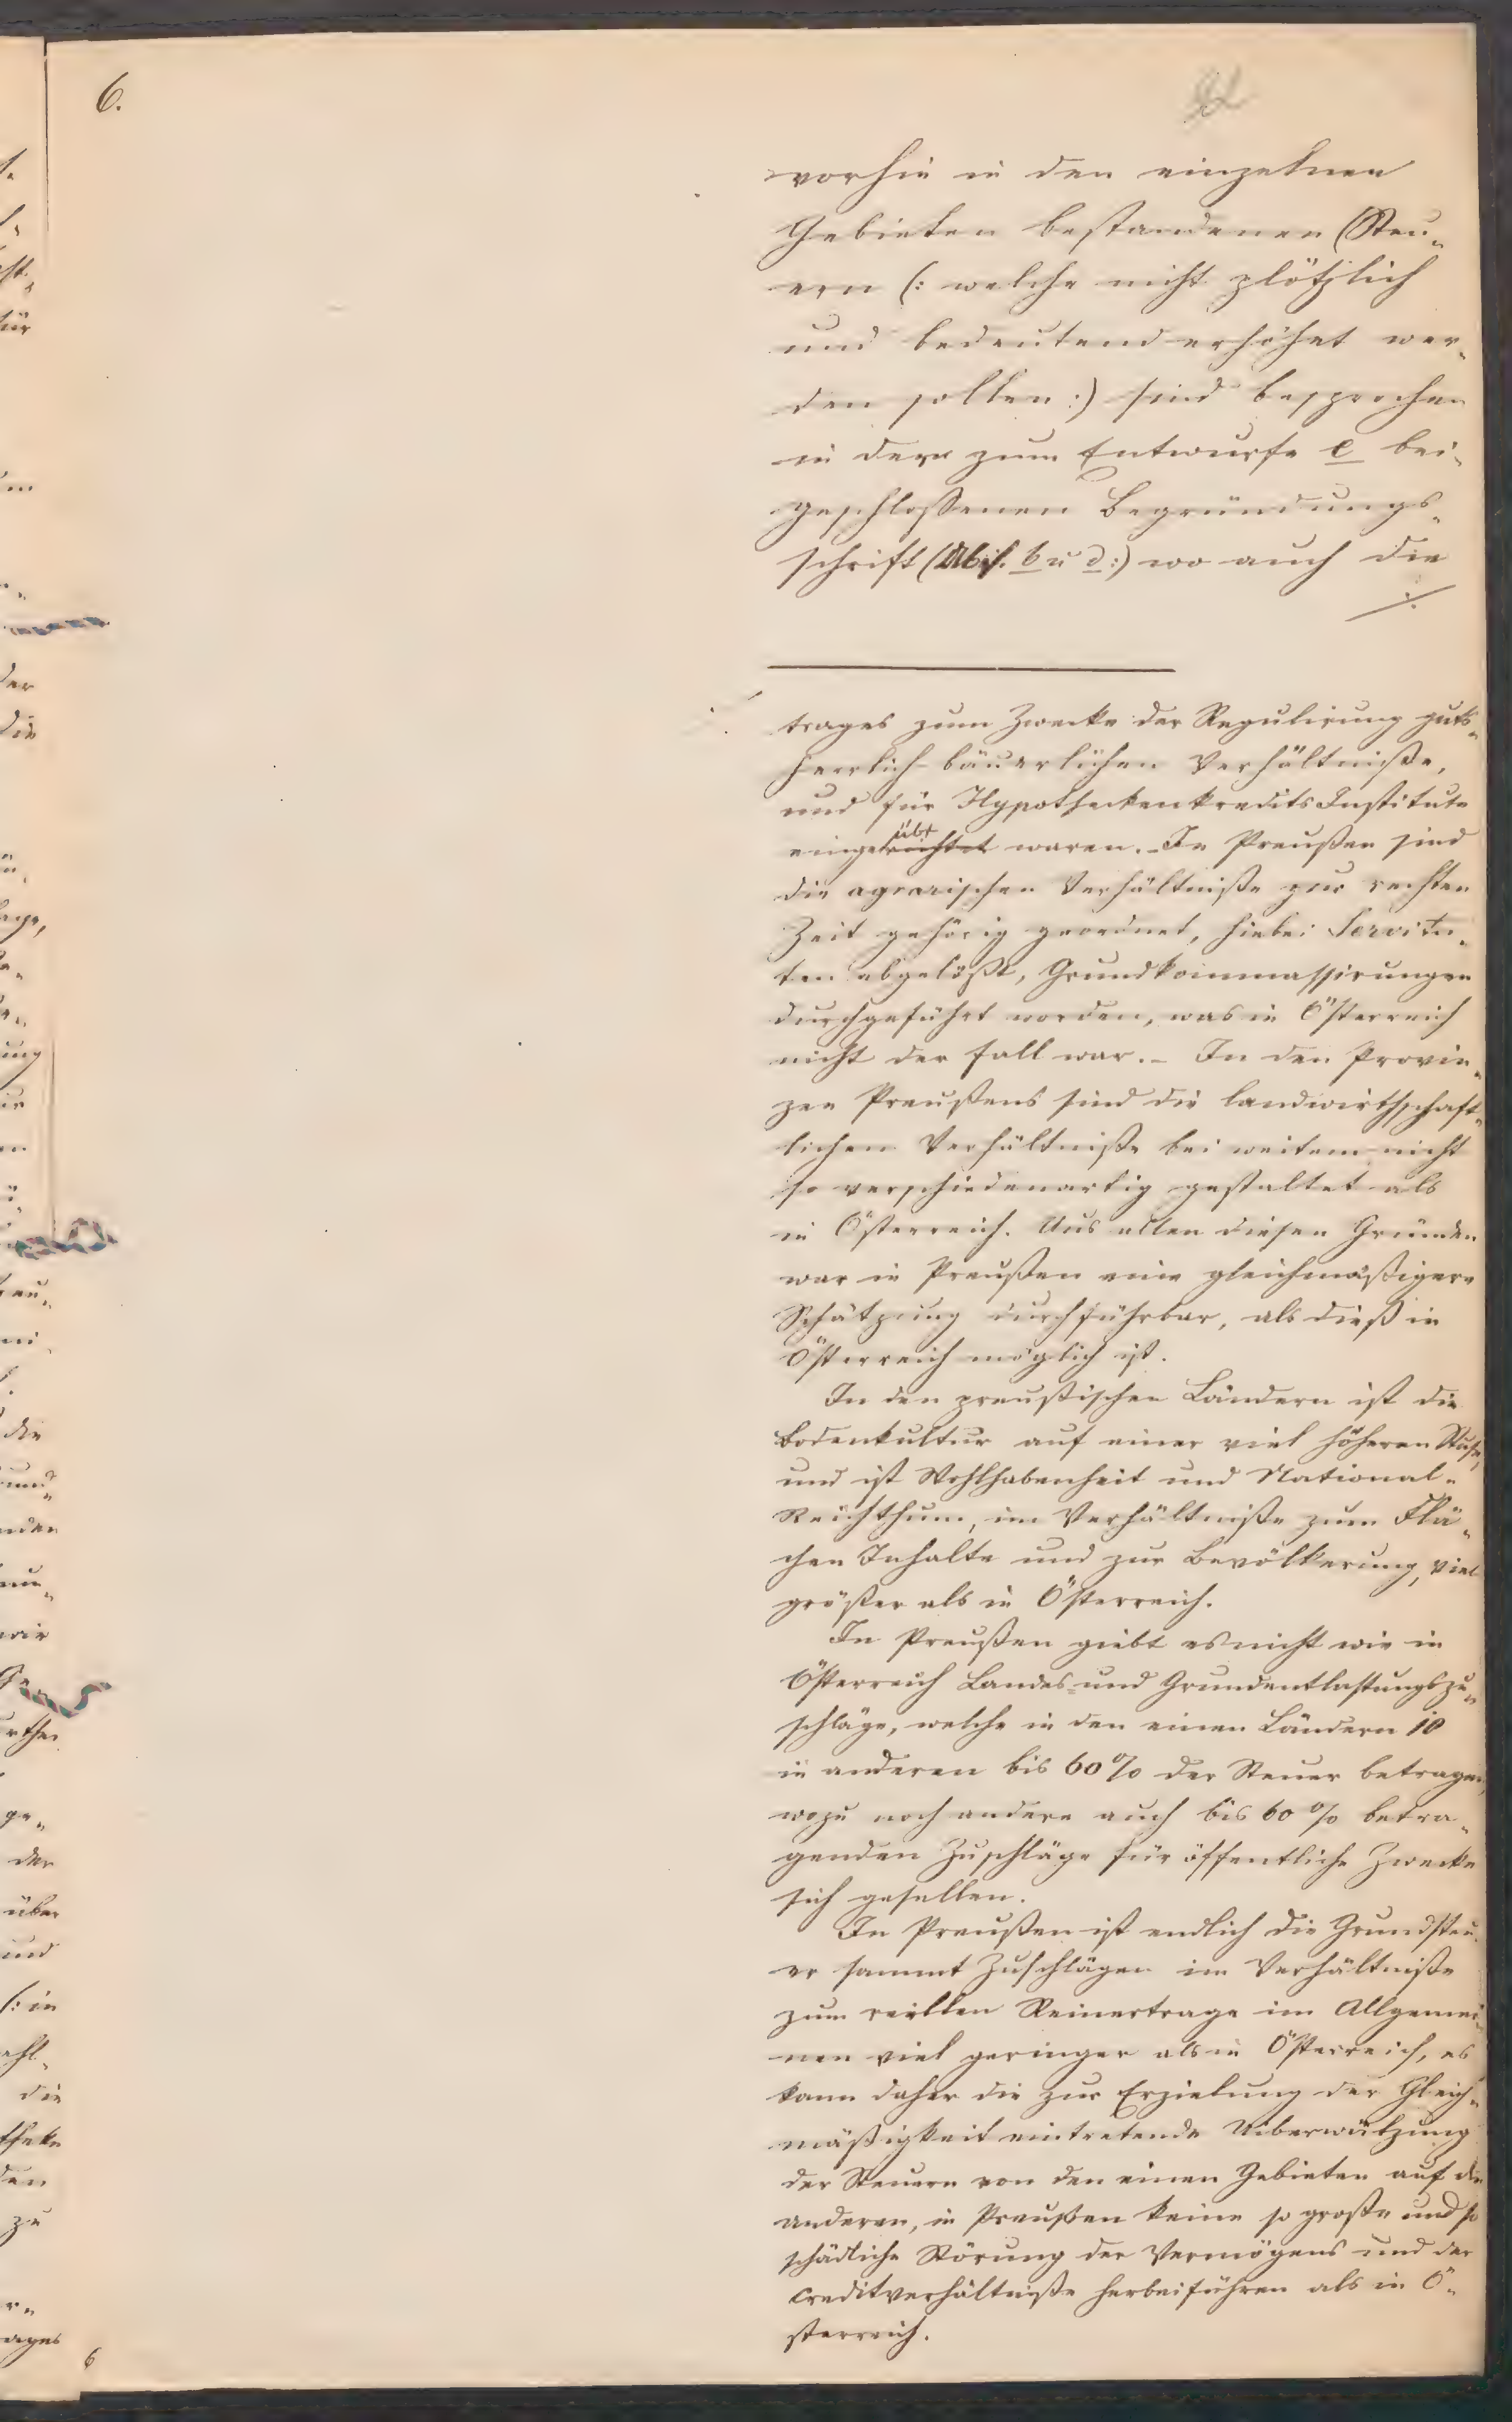 6.
vorhin in den einzelnen
Gebieten bestandenen Steu„
ern (: welche nicht plötzlich
und bedeutend erhöhet wer„
den sollen :) sind besprochen
in der zum Entwurfe e bei„
geschlossenen Begründungs„
schrift ( b u d :) wo auch die
./.
trages zum Zwecke der Regulirung guts„
herrlich-bäuerlichen Verhältniße,
und für Hypothekenkredits Institute
eingerichtet übt waren. – In Preußen sind
die agrarischen Verhältniße zur rechten
Zeit gehörig geordnet, hiebei Servitu„
ten abgelößt, Grundkommassirungen
durchgeführt worden, was in Österreich
nicht der Fall war. – In den Provin„
zen Preußens sind die landwirthschaft„
lichen Verhältniße bei weitem nicht
so verschiedenartig gestaltet als
in Österreich. Aus allen diesen Gründen
war in Preußen eine gleichmäßigere
Schätzung durchführbar, als dieß in
Österreich möglich ist.
In den preußischen Ländern ist die
Bodenkultur auf einer viel höheren Stufe,
und ist Wohlhabenheit und National„
Reichthum, im Verhältniße zum Flä„
chen Inhalte und zur Bevölkerung, viel
größer als in Österreich.
In Preußen giebt es nicht wie in
Österreich Landes- und Grundentlastungszu„
schläge, welche in den einen Ländern 10
in anderen bis 60% der Steuer betragen,
wozu noch andere auch bis 60% betra„
genden Zuschläge für öffentliche Zwecke
sich gesellen.
In Preußen ist endlich die Grundsteu„
er sammt Zuschlägen im Verhältniße
zum reellen Reinertrage im Allgemei„
nen viel geringer als in Österreich, es
kann daher die zur Erzielung der Gleich„
mäßigkeit eintretende Uiberwälzung
der Steuern von den einen Gebieten auf die
anderen, in Preußen keine so große und so
schädliche Störung der Vermögens und der
Creditverhältniße herbeiführen als in Ö„
sterreich.
6